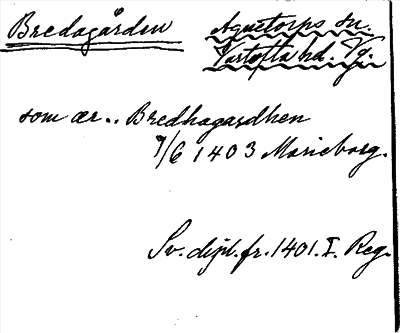 Bredagården
Agnetorps sn.
Vartofta hd. Vg.
som ær .. Bredhagardhen
7/6 1403 Marieborg.
Sv. dipl. fr. 1401. I. Reg.